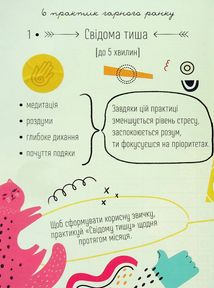 6 практик гарного ранку
1 Свідома тиша
[до 5 хвилин]
• медитація
• роздуми
• глибоке дихання
• почуття подяки
Завдяки цій практиці
зменшується рівень стресу,
заспокоюється розум,
ти фокусуєшся на пріоритетах.
Щоб сформувати корисну звичку,
практикуй «Свідому тишу» щодня
протягом місяця.